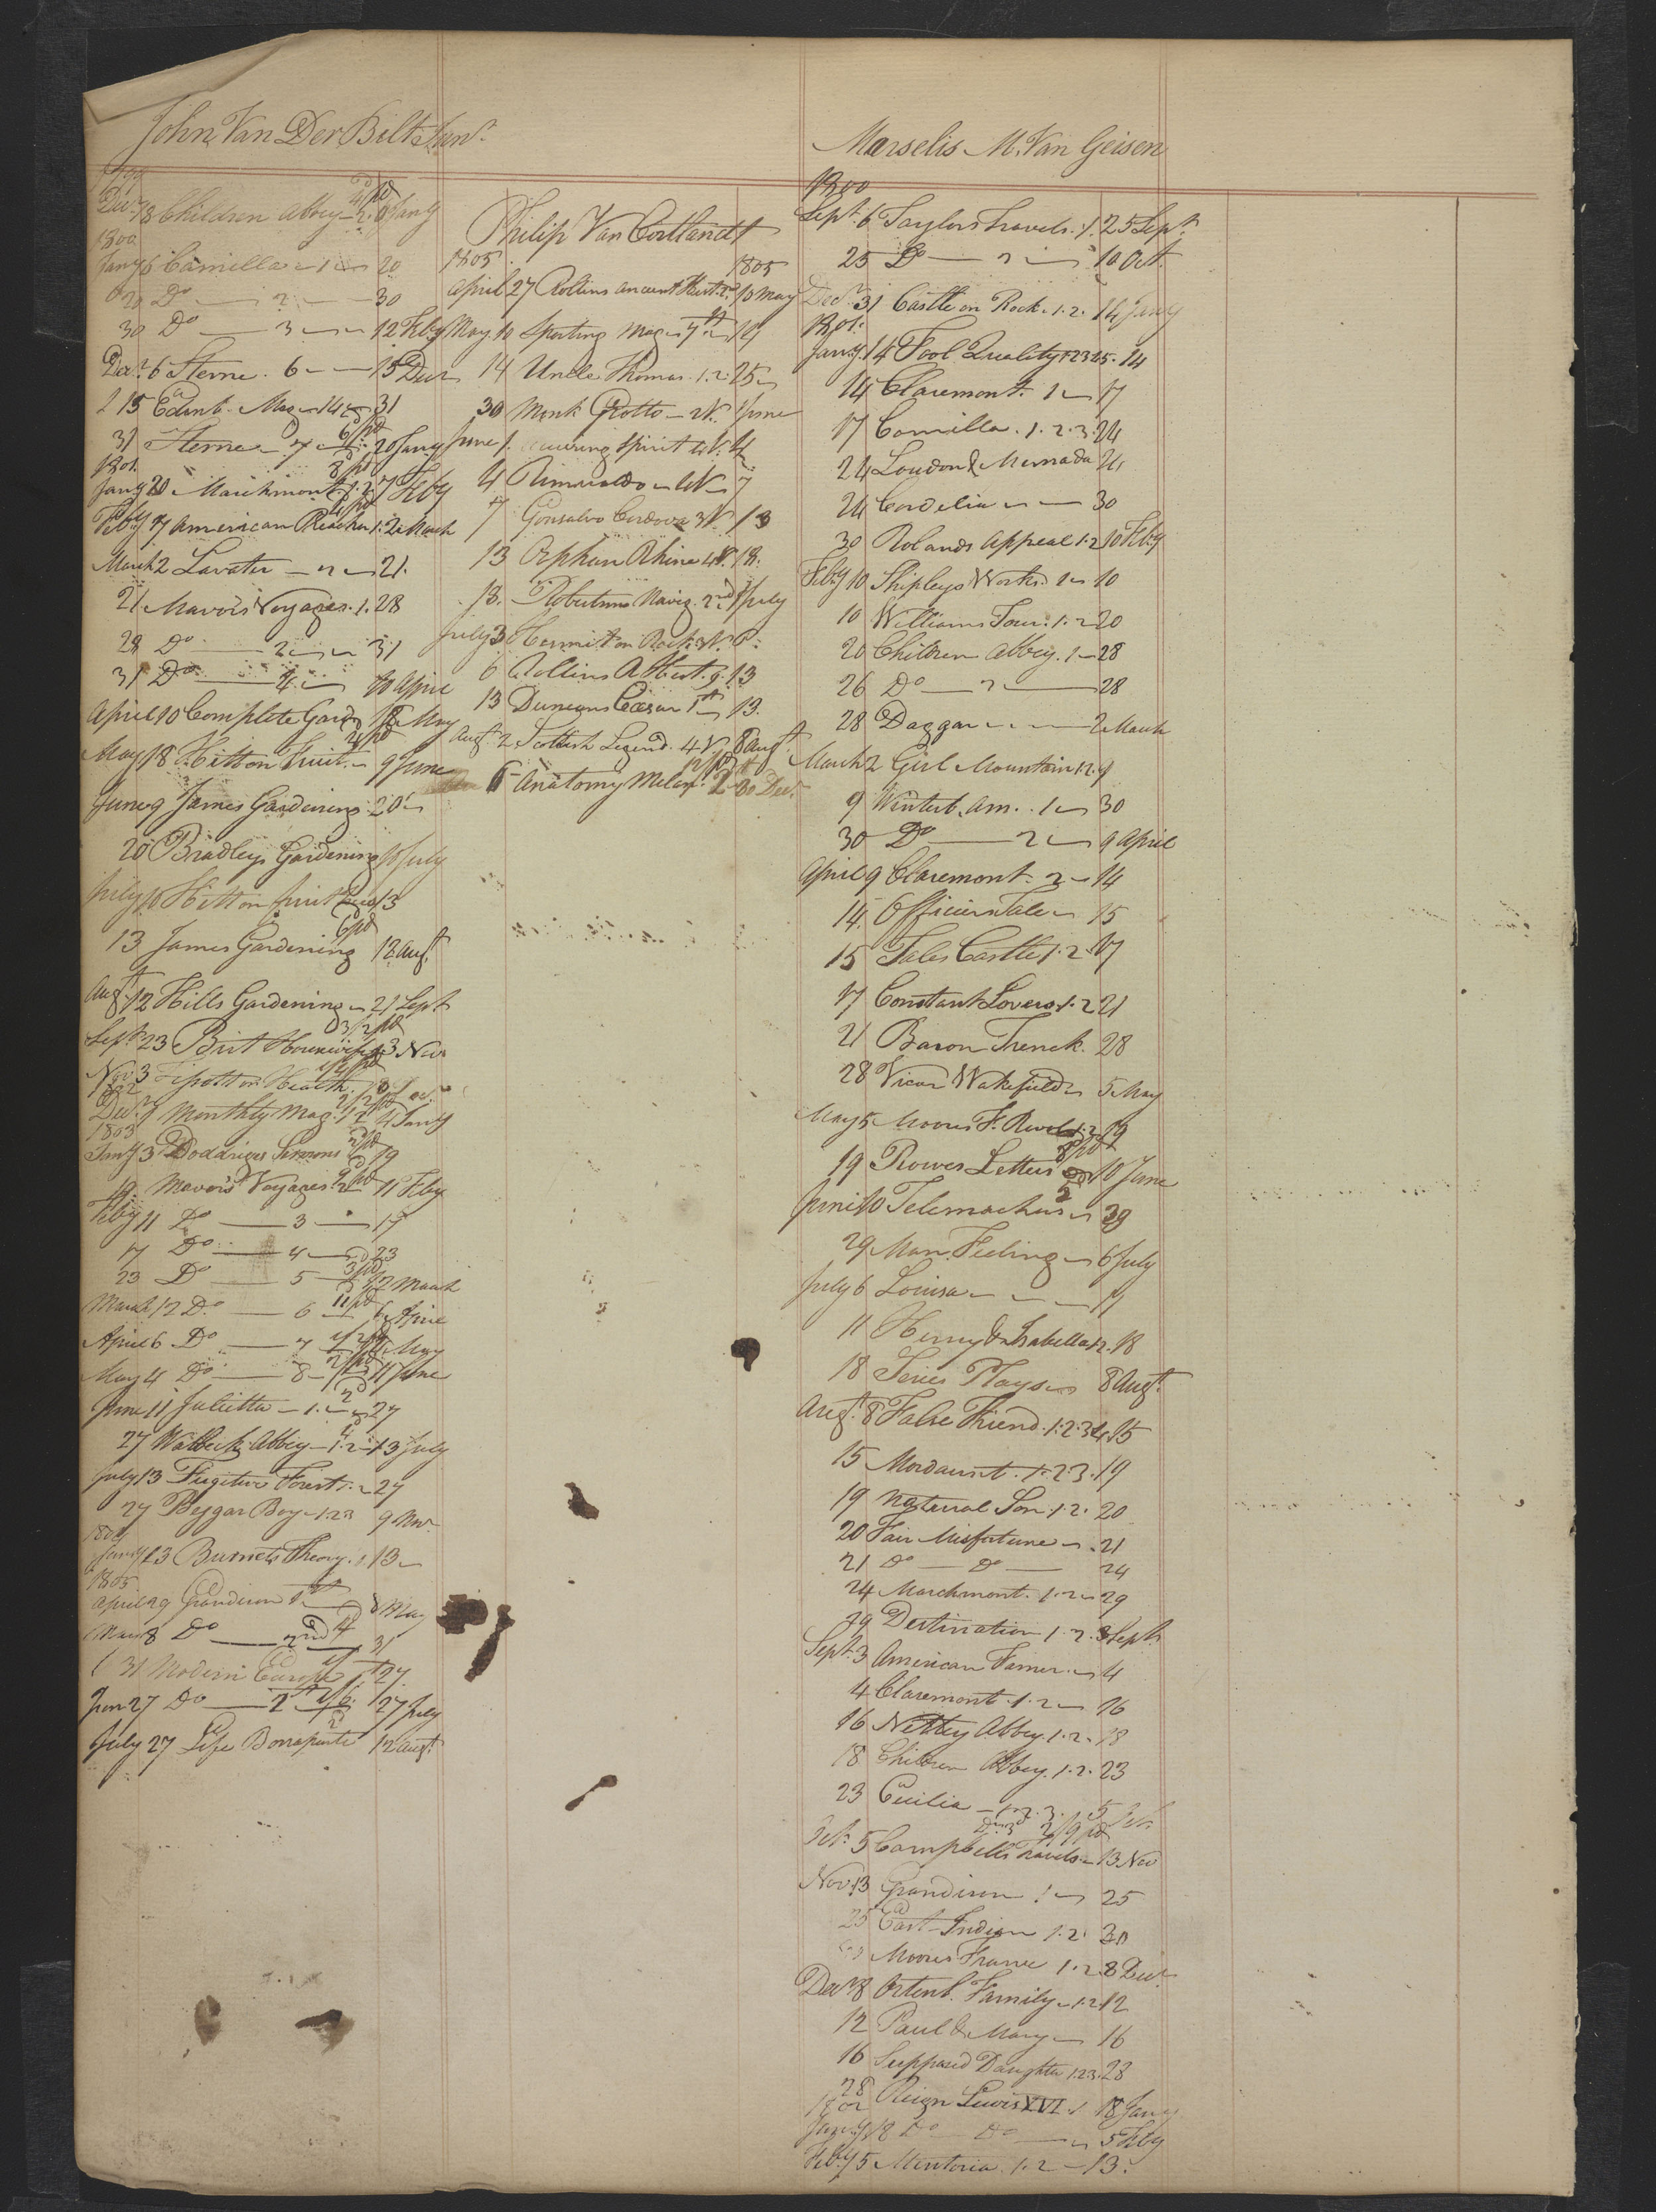 John Van Der Bilt Junr.
Decr. 28 Children Abbey 2. 6 Jany
1800
Jany 6 Camilla 1 20
20 Do 2 30
30 Do 3 12 Feby
Decr. 6 Sterne. 6 15 Decr
15 Edinb. Mag 14 31
31 Sterne 7 20 Jany
1801.
Jany 20 Marchmont 1.2 7 Feby
Feby 7 American Preacher 1. 2 March
March 2 Lavater 21.
21 Mavors Voyages. 1. 28
28 Do 2 31
31 Do 4 10 April
April 10 Complete Gard 18 May
May 18 Hitt on Fruit 9 June
June 9 James Gardening 20
20 Bradleys Gardening 10 July
July 10 Hitt on fruit 13
13 James Gardening 12 Augt.
Augt. 12 Hills Gardening 21 Sept
Sept. 23 Brit Housewife 3 Nov
Nov 3 Tissot on Health
Decr. 7 Monthly Mag. 4 Jany
1803
Jany 3 Doddriges Sermons 19
19 Mavors Voyages 2 11 Feby
Feby 11 Do 3 17
17 Do 4 23
23 Do 5 12 March
March 12 Do. 6 6 April
April 6 Do 7 4 May
May 4 Do 8 11 June
June 11 Julietta 1. 27
27 Walbeck Abbey 1.2 13 July
July 13 Fugitive Forest 27
27 Beggar Boy 1.2.3 9 Nov.
Jany 13 Burnets Theory. 1 13
1805
April 29 Grandison 1st 8 May
May 8 Do 2nd 31
31 Modern Europe 1 27
Jun 27 Do 2 27 July
July 27 Life Bonaparte 12 Augt.
Philip Van Cortlandt
1805 1805
April 27 Rollins Ancient Hist. 10 May
May 10 Sporting Mag 7th 14
14 Uncle Thomas. 1.2 25
30 Monk Grotto 2 V. 1 June
June 1. spirit 4 V. 4
4 Rimualdo 4 V 7
7 Gonsalvo Cordova 3 V. 13
13 Orphan Rhine 4 V. 18.
18. Robertsons Navig. 2nd July
July 3 Hermit on Rock 3 V. 6
6 Rollins A Hist. 9. 13
13 Duncans Cæsar 1st 13.
Augt. 2 Scottish Legend. 4 V 8 Augt.
6 Anatomy Melan. 30 Decr.
Marselis M. Van Geisen
1800
Sept. 6 Taylors Travels. 1. 25 Sept.
25 Do 2 10 Oct.
Decr. 31 Castle on Rock. 1.2. 14 Jany
1801.
Jany. 14 Fool Quality 1 2 3 4 5. 14
14 Claremont. 1 17
17 Camilla. 1.2.3. 24
24 Loudon &
24 Cordelia 30
30 Rolands Appeal 1.2 10 Feby
Feby 10 Shipleys Works. 1 10
10 Williams Tour. 1.2 20
20 Children Abbey. 1 28
26 Do 2 28
28 Daggar 2 March
March 2 Girl Mountain 1.2. 9
9 Winterb. Am. 1 30
30 Do 2 9 April
April 9 Claremont. 2 14
14. Officers Tale 15
15 Tales Castle 1.2. 17
17 Constant Lovers. 1.2 21
21 Baron Trenck. 28
28 Vicar Wakefield 5 May
May 5 Moores F. Revol. 1.2 19
19 Rowes Letters 10 June
June 10 Telemachus 29
29 Man Feeling 6 July
July 6 Louisa 11
11 Henry & Isabella 1.2. 18
18 Series Plays 8 Augt.
Augt. 8 False Friend. 1.2.3 4. 15
15 Mordaunt. 1.2.3. 19
19 Natural Son. 1.2. 20
20 Fair Misfortune 21
21 Do Do 24
24 Marchmont. 1.2 29
29 Destination 1.2. 3 Sept.
Sept. 3 American Farmer. 4
4 Claremont. 1.2 16
16 Netley Abbey. 1.2. 18
18 Children Abbey. 1.2. 23
23 Cecilia 1.2.3. 5 Oct.
Oct. 5 Campbells Travels 13 Nov
Nov. 13 Grandison 1 25
25 East Indian 1.2. 30
Moores France 1.2. 8 Decr
Decr. 8 Ortenb. Family 1.2. 12
12 Paul & Mary 16
16 Supposed Daughter 1.2.3. 28
28 Reign Lewis XVI. 1 18 Jany
1802
Jany. 18 Do Do 5 Feby
Feby 5 Mentoria. 1.2 13.